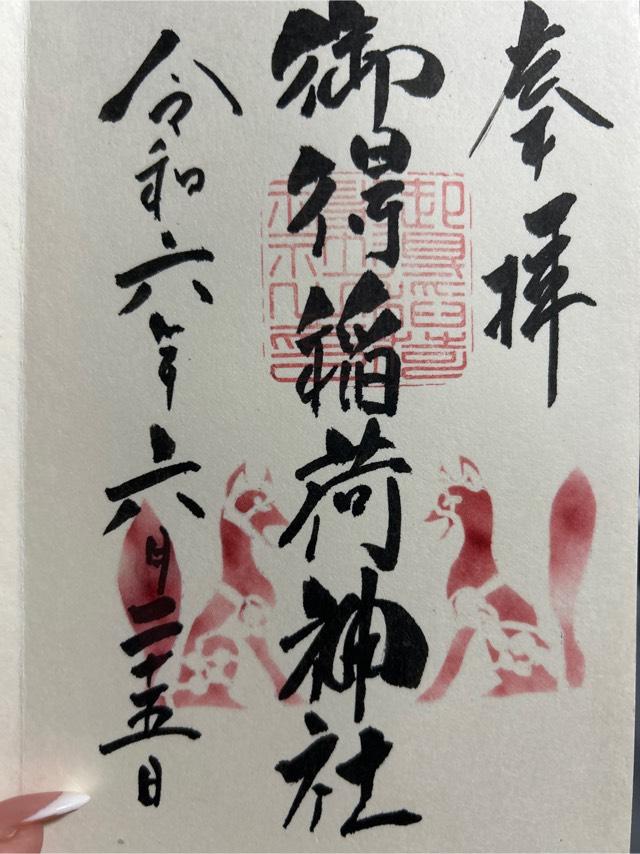 奉拝
御得稲荷神社
令和六年六月二十五日